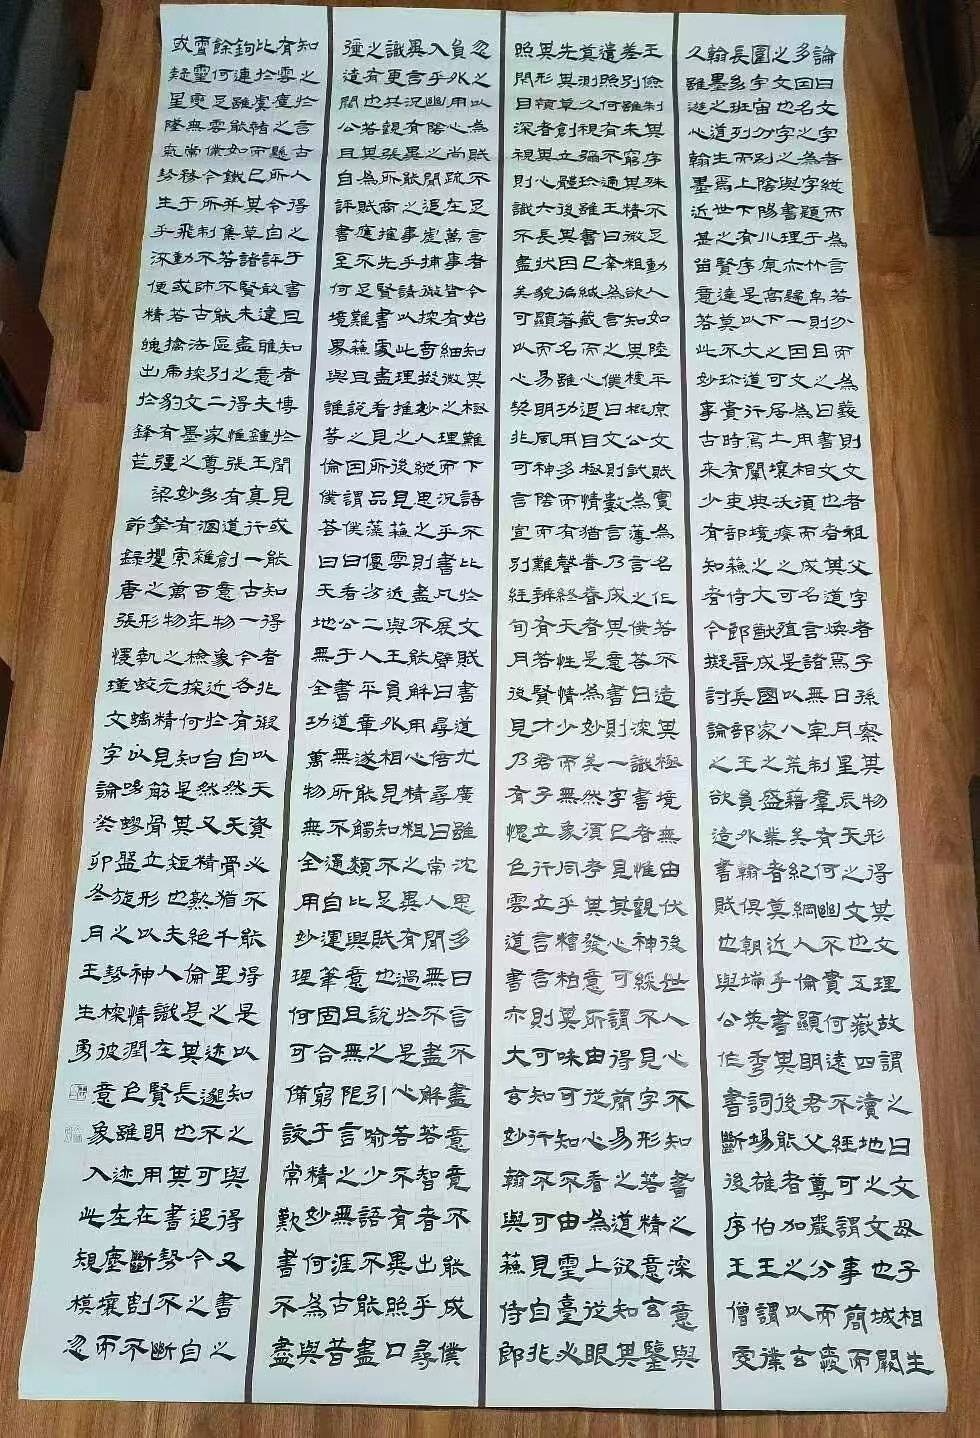 論曰文字者縱而為言若分而為義則文者祖父字者子孫察其物形得其文理故謂之曰文母子相生
多因名之為字題于竹帛則目之曰書文也者其道煥焉日月星辰天之文也五嶽四瀆地之文也城闕
之文也字之與書理亦題一因文為用相須而成名言諸無宰制羣有何幽不貫何遠不經可謂事簡而
圍字宙分別陰陽川原高下之可居土壤沃瘠之可殖是以八荒籍矣紀綱人倫顯明君父尊嚴分而愛
長多班列而上下有序是以大道行焉闡典境之大猷成國家之盛業者莫近乎書其後能者加之以玄
翰墨之道生焉世之賢達莫不珍貴時有吏部蘇侍郎晉兵部王員外翰俱朝端英秀詞場雄伯王謂襟
久雖遊心翰墨近甚留意若此妙事古來少有知者今擬討論之欲造書賦也與公伯書斷後序王僧虔
王儉制其序殊不足動人如陸平原文賦實為名作若不造其極境無由伏後世人心不知書之深意與
差別雖未窮其精微粗欲知異棱概公試為薄言之僕答曰深識書者惟觀神綵不見字形若精意玄鑒
遣照何有不遍玉曰牽為言之僕曰文則數言乃成其意書則一字已見其心可謂得簡易之道欲知其
其測久視彌珍雖書已緘藏而心追目極情猶眷眷者是為妙矣然須考其發意所由從心看為上從眼
先其草創立體後其因徧著名雖功用多而有聲終天性情少而無象同乎糟粕其味可知不由靈臺必
異形積者異心六長狀貌顯而易明風神陰而難辨有若賢才君子立行立言言則可知行不可見自非
照閒目深視則識不盡矣可以心契非可言宣別經旬月後見乃有愧色雲道書亦大玄妙翰與蘇侍郎
忽之以為賦不足言者今始知其極難下語不比於文賦書道尤廣雖沈思多日言不盡意意不能成僕
負外用心尚疏在萬事皆有細微之理而況乎書凡展臂曰尋倍尋曰常人聞無不盡解若智者出乎尋
入乎幽陰異聞追虛捕微探奇擬妙人縱思之則盡不能解用心精粗之異有過於是心若不有異照口
異言況有異能之事乎請以此理推之後見蘇雲近與王員外相見知不足賦也說之引喻少語不能盡
識更共觀張所商搉先賢書處盡看見所品藻優劣二人平章遂能觸類比興意且無限言之無涯古昔
之有也若其為賦應不足難蘇且說之因謂僕曰看公于書道無所不通自運筆固合窮于精妙何為與
彊遠聞公且自評書至何境界與誰等倫僕答曰天地無全功萬物無全用妙理何可備該常歎書不盡
知之於言古人得之于書曰知者博於聞見或能知得者非假以天資必不能得是以知之與得又書之
有雲塵之懸所今自評敢違雖意夫鍾王真行一古一今各有自然天骨猶千里之迹邈不可追今之自
比於虞緒而已其草諸賢未盡之得惟張有道創意物象近於自然又精熟絕倫是其長也其書勢不斷
鉤連雖能如鐵并集若不能區別二家尊多有涸雜百年檢探何知是其短也夫人識在賢明用在斷割不
餘何足雲僕今所制不師古法探文墨之妙有索萬物之元精以筋骨立形以神情潤色雖迹在塵壤而
靈變無常務于飛動或若擒虎豹有彊梁拏攫之形執蛟螭見蚴蟉盤旋之勢探彼意象入此規模忽
或疑星墜氣勢生乎流便精魄出於鋒芒
節錄唐張懷瓘文字論癸卯冬月王生勇